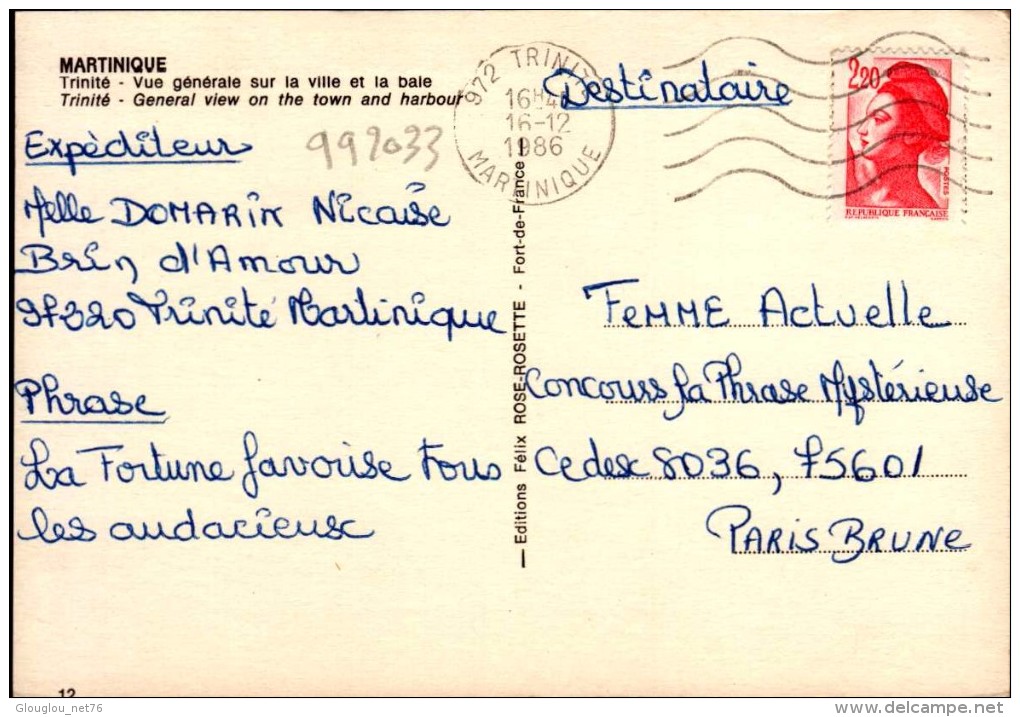 MARTINIQUE
Trinité - Vue générale sur la ville et la baie
Trinité - General view on the town and harbour
972 TRINITÉ
16-12
1986
MARTINIQUE
Destinataire
2,20
POSTES
REPUBLIQUE FRANÇAISE
Expèditeur
992033
Melle DOMARIN Nicaise
Brin d'Amour
97320 Trinité Martinique
Phrase
La Fortune favorise tous
les audacieux
Editions Félix ROSE-ROSETTE - Fort-de-France
FEMME Actuelle
Concours la Phrase Mystérieuse
Cedex 8036, 75601
PARIS BRUNE
12
Glouglou_net76